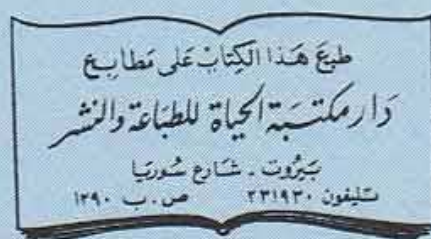 طبعَ هَذا الكِتابْ عَلى مَطابِع
دَار مكتبَة الحيَاة للطبَاعَة وَالنشر
بَيرُوت - شَارع سُوريَا
تليفون ٢٣١٩٣٠ ص.ب ١٢٩٠